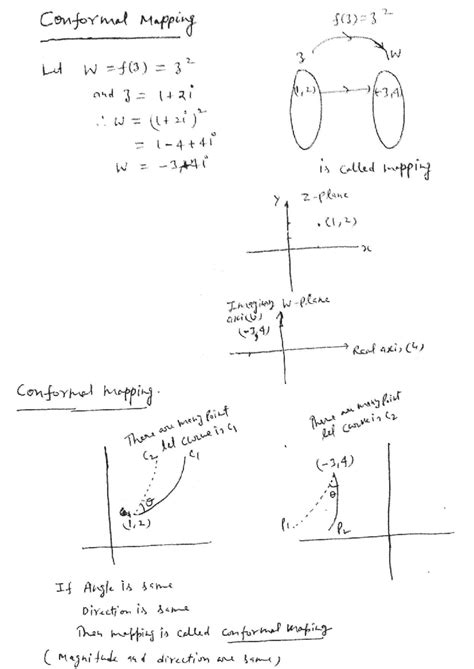 Conformal Mapping
f(z) = z²
z
W
Let W = f(z) = z²
and z = 1+2i
(1,2)
-3,4
∴ W = (1+2i)²
= 1-4+4i
W = -3+4i
is called mapping
Y
Z-plane
.(1,2)
x
Imaginary W-plane
axis(v)
(-3,4)
Real axis, (u)
Conformal mapping.
There are many point
let curve is C₁
C₂
C₁
θ
(1,2)
There are many point
let curve is C₂
(-3,4)
θ
P₁
P₂
If Angle is same
Direction is same
Then mapping is called conformal mapping
(Magnitude and direction are same)